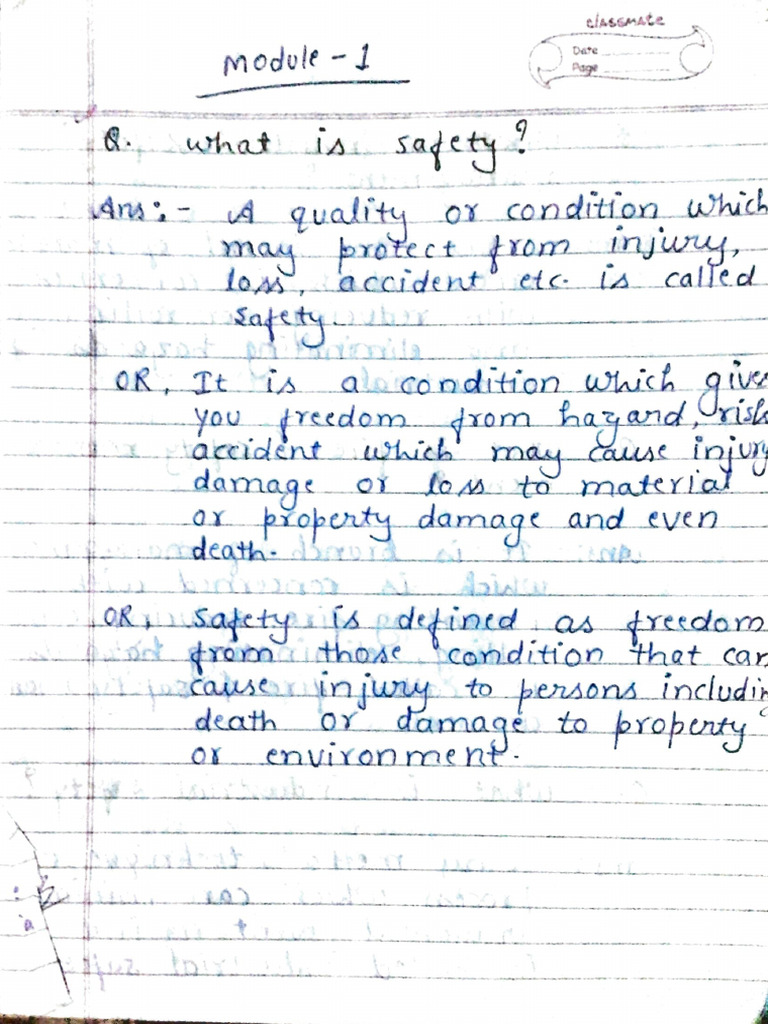 classmate
Date
Page
Module - 1
Q. what is safety?
Ans:- A quality or condition which
may protect from injury,
loss, accident etc. is called
safety.
OR, It is a condition which gives
you freedom from hazard, risk
accident which may cause injury
damage or loss to material
or property damage and even
death.
OR, Safety is defined as freedom
from those condition that can
cause injury to persons includin
death or damage to property
or environment.